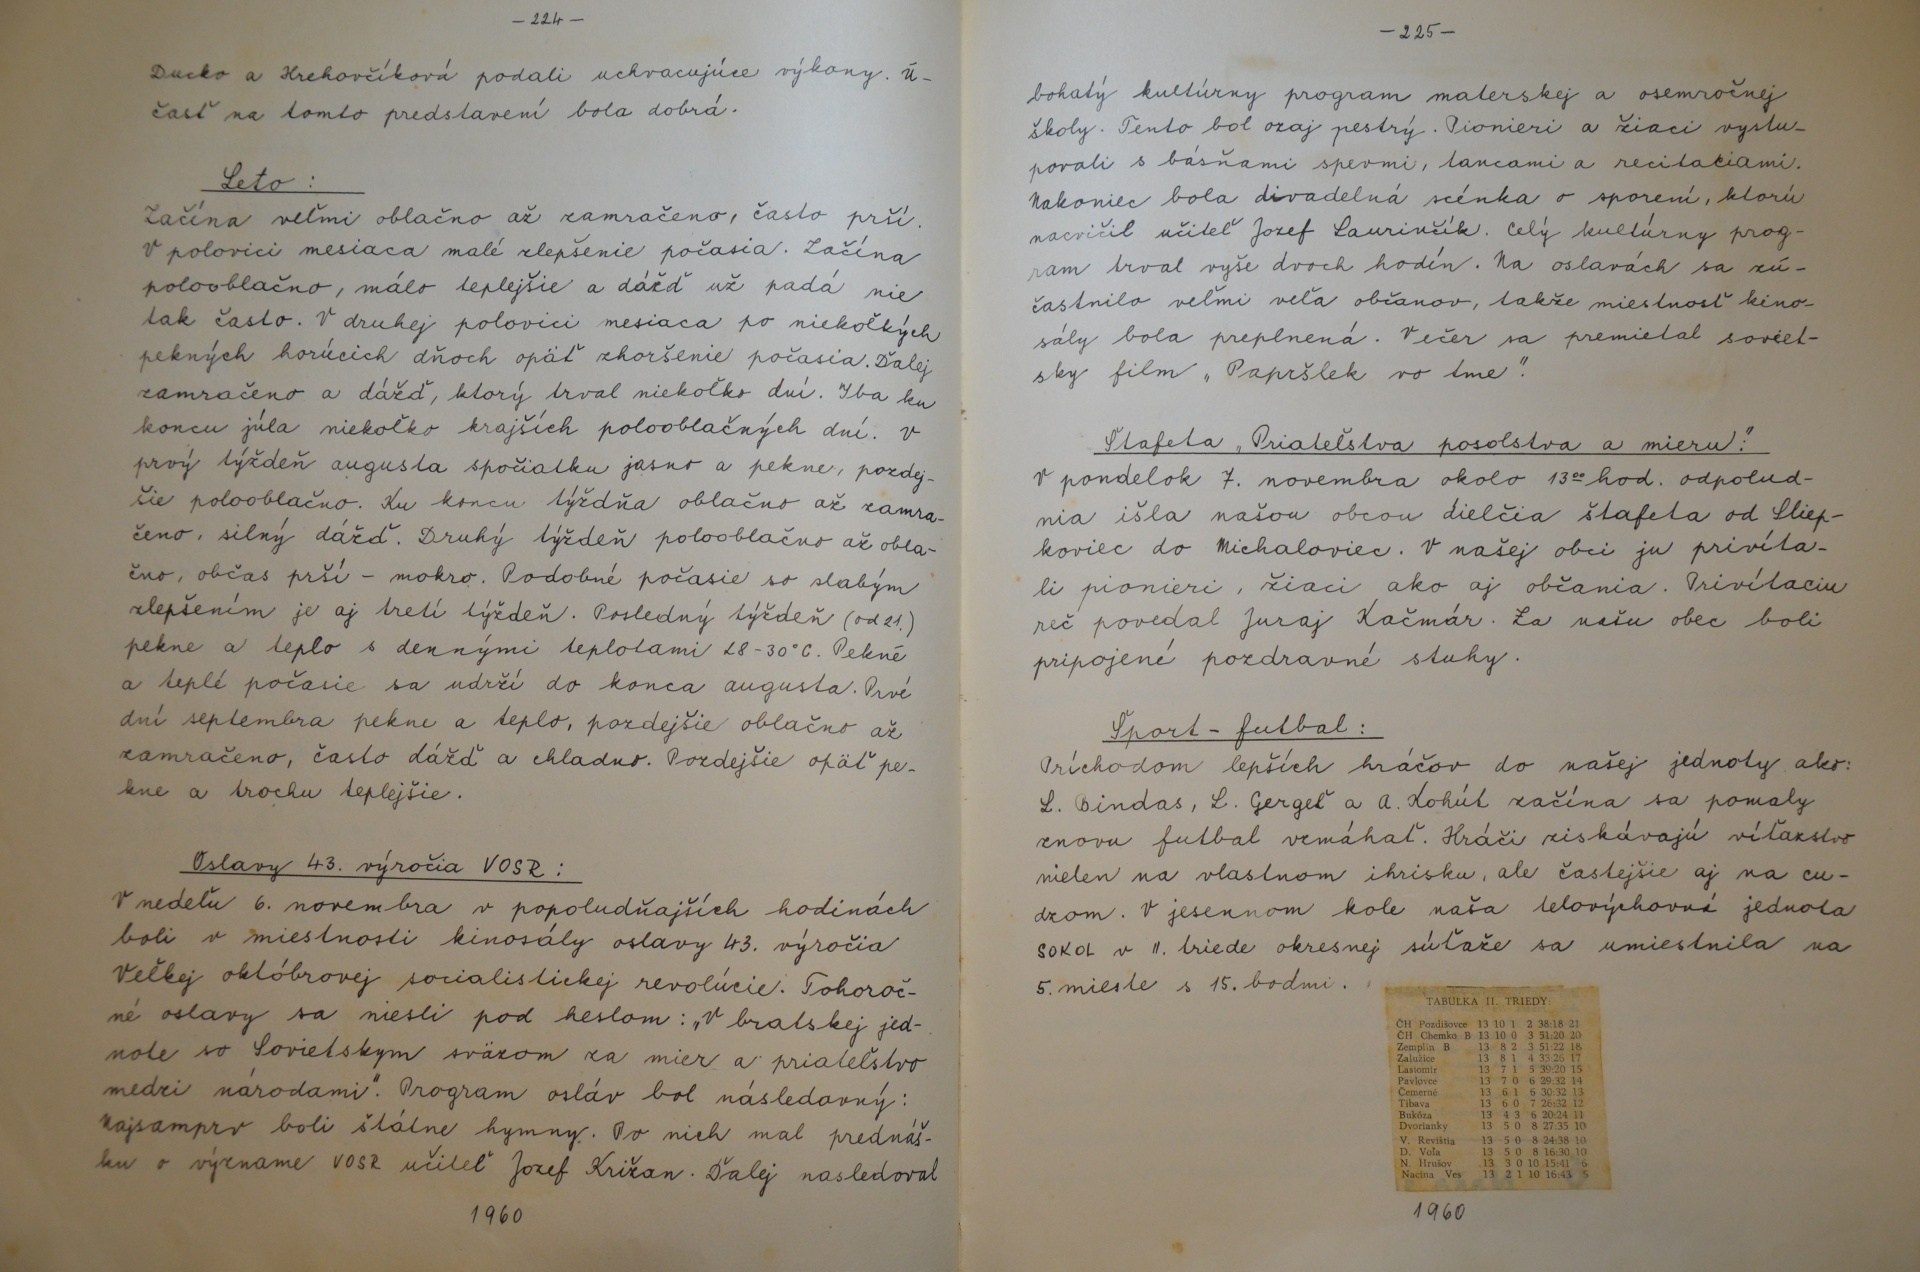 - 224 -
Ducko a Hrehovčíková podali uchvacujúce výkony. Ú-
časť na tomto predstavení bola dobrá.
Leto :
Začína veľmi oblačno až zamračeno, často prší.
V polovici mesiaca malé zlepšenie počasia. Začína
polooblačno, málo teplejšie a dážď už padá nie
tak často. V druhej polovici mesiaca po niekoľkých
pekných horúcich dňoch opäť zhoršenie počasia. Ďalej
zamračeno a dážď, ktorý trval niekoľko dní. Iba ku
koncu júla niekoľko krajších polooblačných dní. V
prvý týždeň augusta spočiatku jasno a pekne, pozdej-
šie polooblačno. Ku koncu týždňa oblačno až zamra-
čeno, silný dážď. Druhý týždeň polooblačno až obla-
čno, občas prší - mokro. Podobné počasie so slabým
zlepšením je aj tretí týždeň. Posledný týždeň (od 21.)
pekne a teplo s dennými teplotami 28-30°C. Pekné
a teplé počasie sa udrží do konca augusta. Prvé
dni septembra pekne a teplo, pozdejšie oblačno až
zamračeno, často dážď a chladno. Pozdejšie opäť pe-
kne a trochu teplejšie.
Oslavy 43. výročia VOSR :
V nedeľu 6. novembra v popoludňajších hodinách
boli v miestnosti kinosály oslavy 43. výročia
Veľkej októbrovej socialistickej revolúcie. Tohoroč-
né oslavy sa niesli pod heslom: „V bratskej jed-
note so Sovietskym sväzom za mier a priateľstvo
medzi národami". Program osláv bol následovný:
Najsamprv boli štátne hymny. Po nich mal prednáš-
ku o význame VOSR učiteľ Jozef Križan. Ďalej nasledoval
1960
- 225 -
bohatý kultúrny program materskej a osemročnej
školy. Tento bol ozaj pestrý. Pionieri a žiaci vystu-
povali s básňami spevmi, tancami a recitaciami.
Nakoniec bola divadelná scénka o sporení, ktorú
nacvičil učiteľ Jozef Laurinčík. Celý kultúrny prog-
ram trval vyše dvoch hodín. Na oslavách sa zú-
častnilo veľmi veľa občanov, takže miestnosť kino-
sály bola preplnená. Večer sa premietal soviet-
sky film „Papršlek vo tme".
Štafeta „Priateľstva posolstva a mieru":
V pondelok 7. novembra okolo 13⁰⁰ hod. odpolud-
nia išla našou obcou dielčia štafeta od Sliep-
koviec do Michaloviec. V našej obci ju privíta-
li pionieri, žiaci ako aj občania. Privítaciu
reč povedal Juraj Kačmár. Za našu obec boli
pripojené pozdravné stuhy.
Šport - futbal :
Príchodom lepších hráčov do našej jednoty ako:
L. Bindas, L. Gergeľ a A. Kohút začína sa pomaly
znovu futbal vzmáhať. Hráči získávajú víťazstvo
nielen na vlastnom ihrisku, ale častejšie aj na cu-
dzom. V jesennom kole naša telovýchovná jednota
SOKOL v II. triede okresnej súťaže sa umiestnila na
5. mieste s 15. bodmi.
TABUĽKA II. TRIEDY:
ČH Pozdišovce 13 10 1 2 38:18 21
ČH Chemko B 13 10 0 3 51:20 20
Zemplín B 13 8 2 3 51:22 18
Zalužice 13 8 1 4 33:26 17
Lastomír 13 7 1 5 39:20 15
Pavlovce 13 7 0 6 29:32 14
Čemerné 13 6 1 6 30:32 13
Tibava 13 6 0 7 26:32 12
Bukóza 13 4 3 6 20:24 11
Dvorianky 13 5 0 8 27:35 10
V. Revištia 13 5 0 8 24:38 10
D. Voľa 13 5 0 8 16:30 10
N. Hrušov 13 3 0 10 15:41 6
Nacina Ves 13 2 1 10 16:43 5
1960